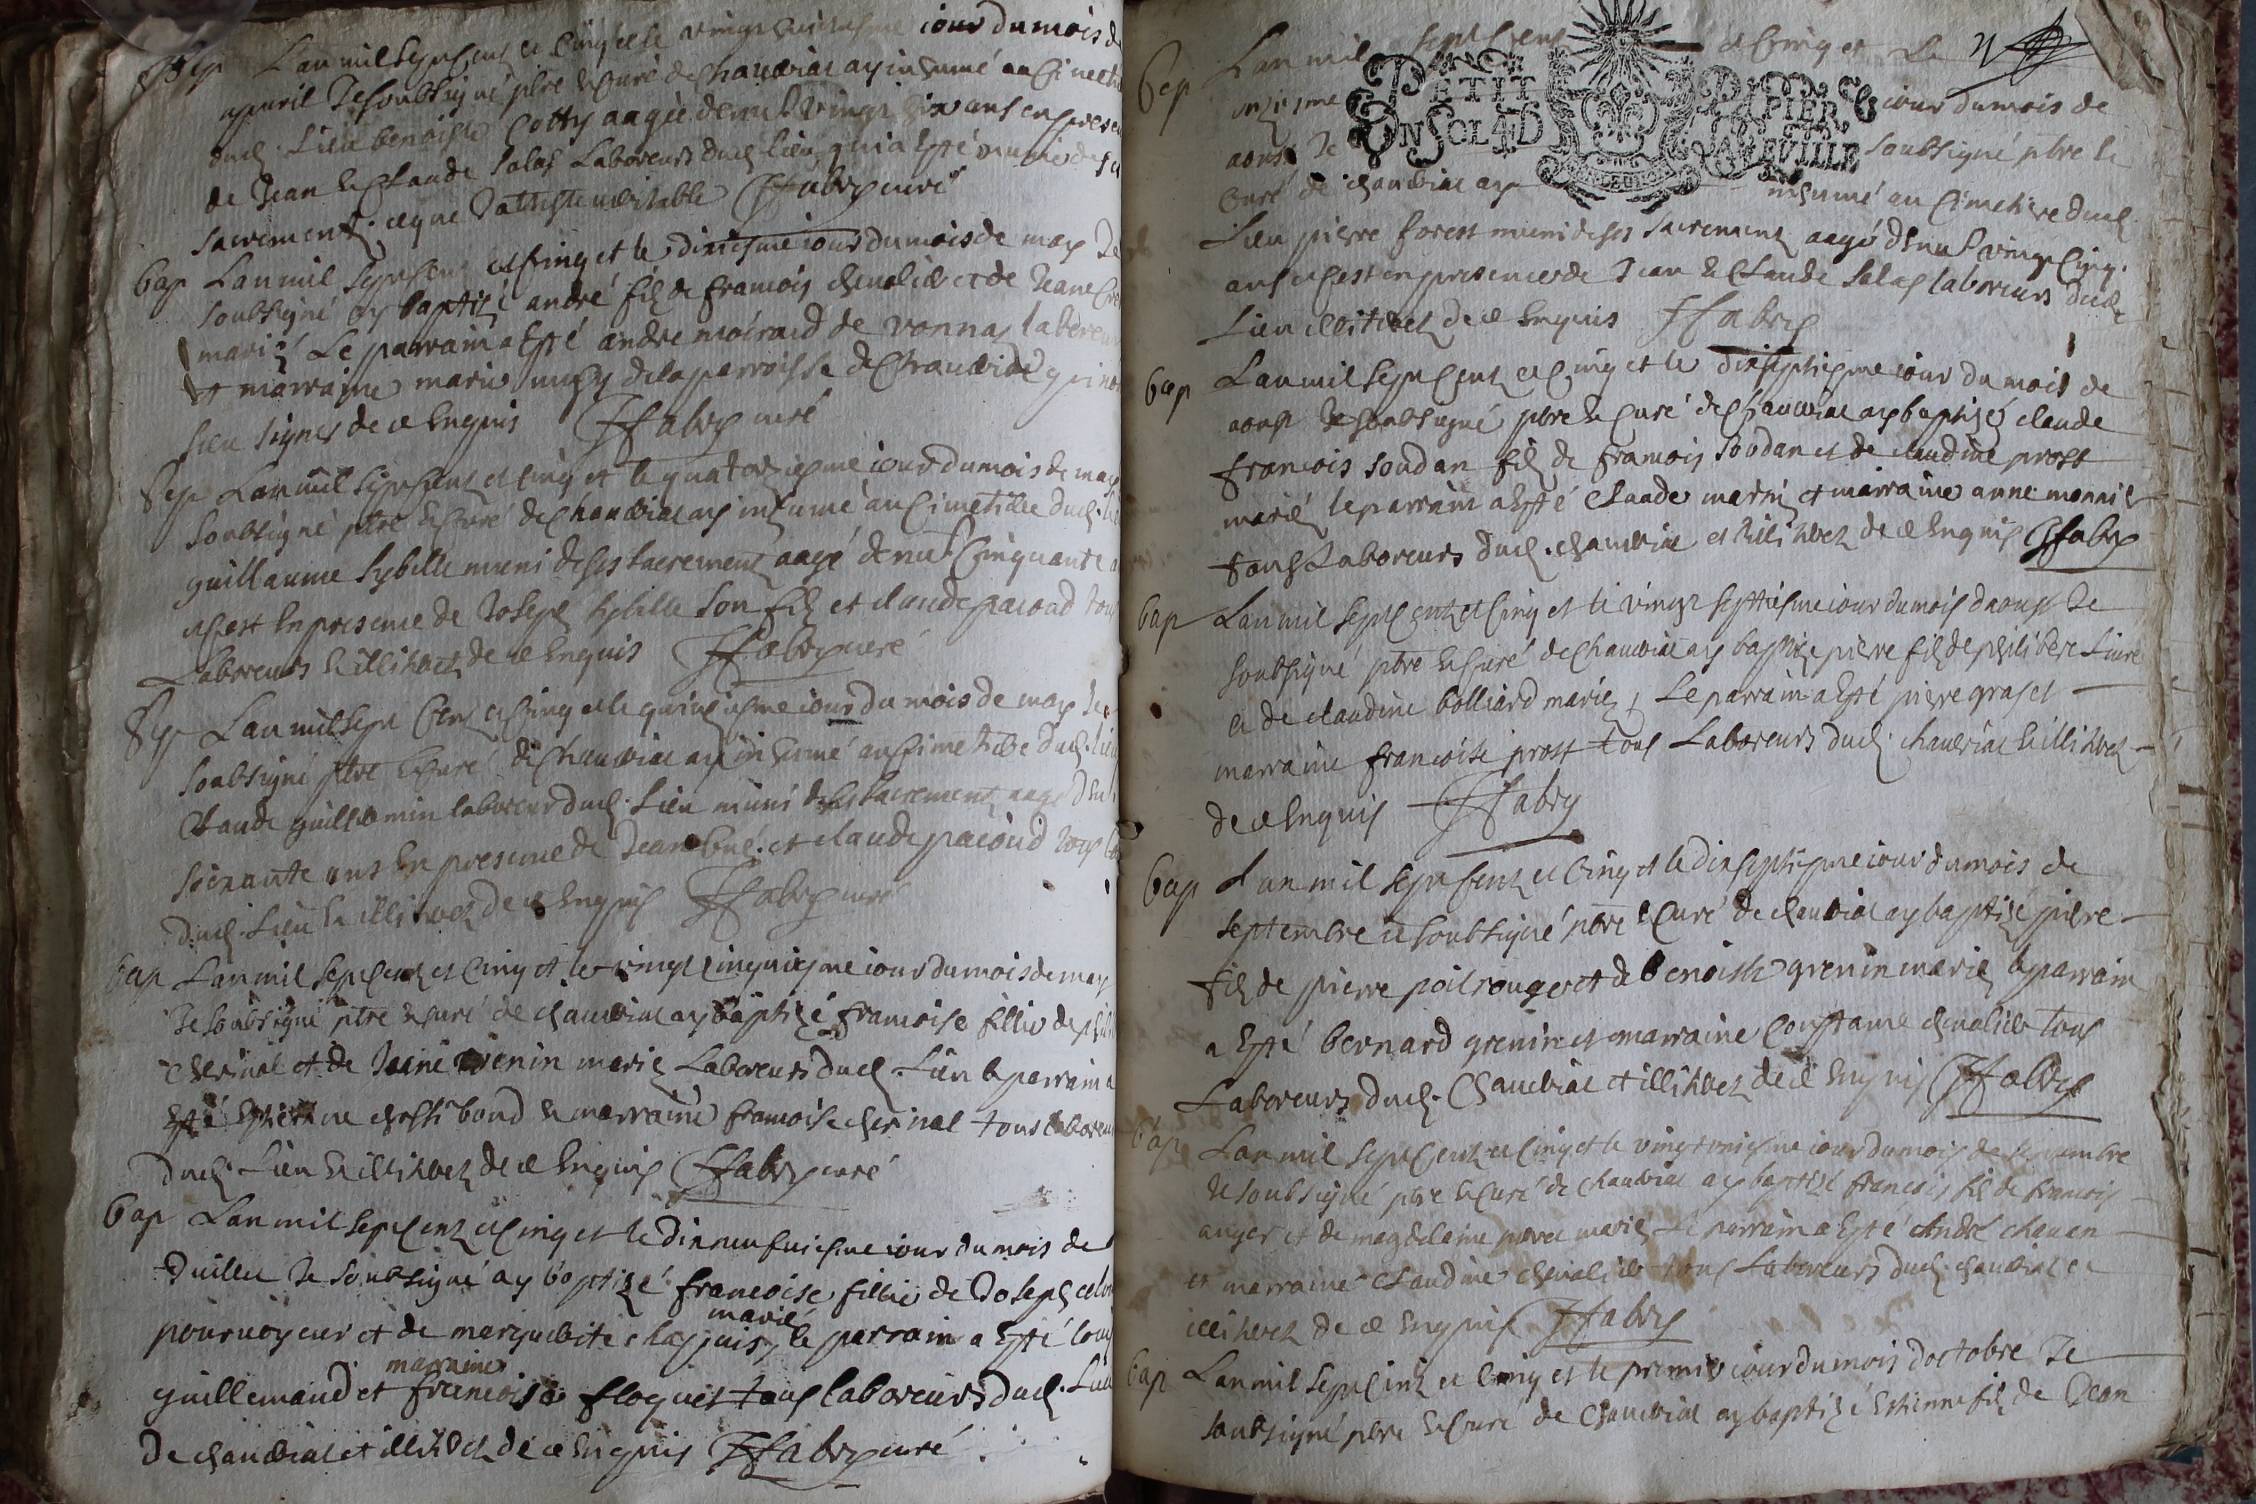 Sep Lan mil sept cent et cinq et le vingt iour du mois d
apuril Je soubsigné ptre et curé de chauuiat ay inhumé au cimeti
dud. Lieu benoiste Cotty aagée denui. vingt six ans en prese
de Jean et Claude Salas Laboreurs dud. lieu qui a Esté munie de s
sacrement. ce que J'atteste veritable JFabry curé
bap Lan mil sept cent et cinq et le dixiesme iour du mois de may Je
soubsigné ay baptizé andré filz de francois cheualier et de Jeane
mariéz Le parrain a Esté andre moiraud de vonnas labereur
et marraine marie dela parroisse de Chauuiat qui n
sceu signer de ce Enquis JFabry curé
Sep Lan mil sept cent et cinq et le quatorziesme iour du mois de may
soubsigné ptre et curé de Chauuiat ay inhumé au Cimetiere dud. li
guillaume sybille muni de ses sacrementz aagé denui. Cinquante a
et c'est En presence de Joseph sybille son filz et claude pacoud tous
Laboreurs et illiterez de ce Enquis JFabry curé
Sep Lan mil sept cent et cinq et le quinziesme iour du mois de may Je
soubsigné ptre et curé de Chauuiat ay inhumé au Cimetiere dud. lieu
Claude guillemin laboreur dud. Lieu muni de ses sacrementz aagé denui
soixante ans En presence de Jean et claude pacoud tous
dud. Lieu et illiterez de ce Enquis JFabry curé
bap Lan mil sept cent et cinq et le vingt cinquiesme iour du mois de may
Je soubsigné ptre et curé de chauuiat ay baptizé francoise fillie de phili
chernal et de Jeane grenin mariez Laboreurs dud. Lieu le parrain a
Esté Estienne bond et marraine francoise chernal tous laboreurs
dud. Lieu et illiterez de ce Enquis JFabry curé
bap Lan mil sept cent et cinq et le dixneufuiesme iour du mois de
Juillet Je soubsigné ay baptizé francoise fillie de Joseph
pouruoyeur et de marguerite chapuis, marié le parrain a Esté
guillemaud et marraine francoise floquet tous laboreurs dud. Lieu
de chauuiat et illiterez de ce Enquis JFabry curé
Sep Lan mil sept cent et cinq et Le
onziesme iour du mois de
PETIT PAPIER,
UN SOL 4 D LA FEUILLE
aoust Je soubsigné ptre et
curé de chauuiat ay inhumé au Cimetiere dud.
Lieu pierre forest muni de ses sacrementz aagé denui. vingt Cinq
ans et c'est en presence de Jean et Claude salas laboreurs dud.
Lieu illiterez de ce Enquis JFabry
bap Lan mil sept cent et cinq et le dixseptiesme iour du mois de
aoust Je soubsigné ptre et Curé de chauuiat ay baptizé claude
francois soudan filz de francois soudan et de claudine prost
mariéz le parrain a Esté Claude marin et marraine anne monnier
tous Laboreurs dud. chauuiat et illiterez de ce Enquis JFabry
bap Lan mil sept cent et cinq et le vingt septiesme iour du mois daoust Je
soubsigné ptre et curé de chauuiat ay baptizé pierre filz de philibert Liure
et de claudine bolliard mariez, Le parrain a Esté pierre gras et
marraine francoise prost tous Laboreurs dud. chauuiat et illiterez
de ce Enquis JFabry
bap Lan mil sept cent et cinq et le dixseptiesme iour du mois de
septembre Je soubsigné ptre et Curé de chauuiat ay baptizé pierre
filz de pierre poilrouger et de benoiste grenin mariez le parrain
a Esté bernard grenin et marraine Constance cheualier tous
Laboreurs dud. Chauuiat et illiterez de ce Enquis JFabry
bap Lan mil sept cent et cinq et le iour du mois de septembre
Je soubsigné ptre et curé de chauuiat ay baptizé francois filz de francois
auger et de magdelaine mariéz Le parrain a Esté André chanen
et marraine Claudine cheualier tous Laboreurs dud. chauuiat et
illiterez de ce Enquis JFabry
bap Lan mil sept cent et cinq et le premier iour du mois doctobre Je
soubsigné ptre et Curé de Chauuiat ay baptizé Estienne filz de Jean